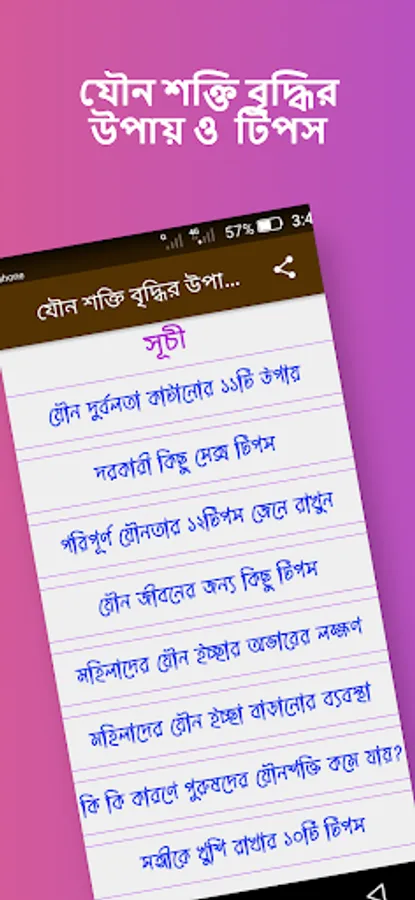 যৌন শক্তি বৃদ্ধির
উপায় ও টিপস
57% 3:4
যৌন শক্তি বৃদ্ধির উপা...
সূচী
যৌন দুর্বলতা কাটানোর ১১টি উপায়
দরকারী কিছু সেক্স টিপস
পরিপূর্ণ যৌনতার ১২টিপস জেনে রাখুন
যৌন জীবনের জন্য কিছু টিপস
মহিলাদের যৌন ইচ্ছার অভাবের লক্ষ্মণ
মহিলাদের যৌন ইচ্ছা বাড়ানোর ব্যবস্থা
কি কি কারণে পুরুষদের যৌনশক্তি কমে যায়?
সঙ্গীকে খুশি রাখার ১০টি টিপস